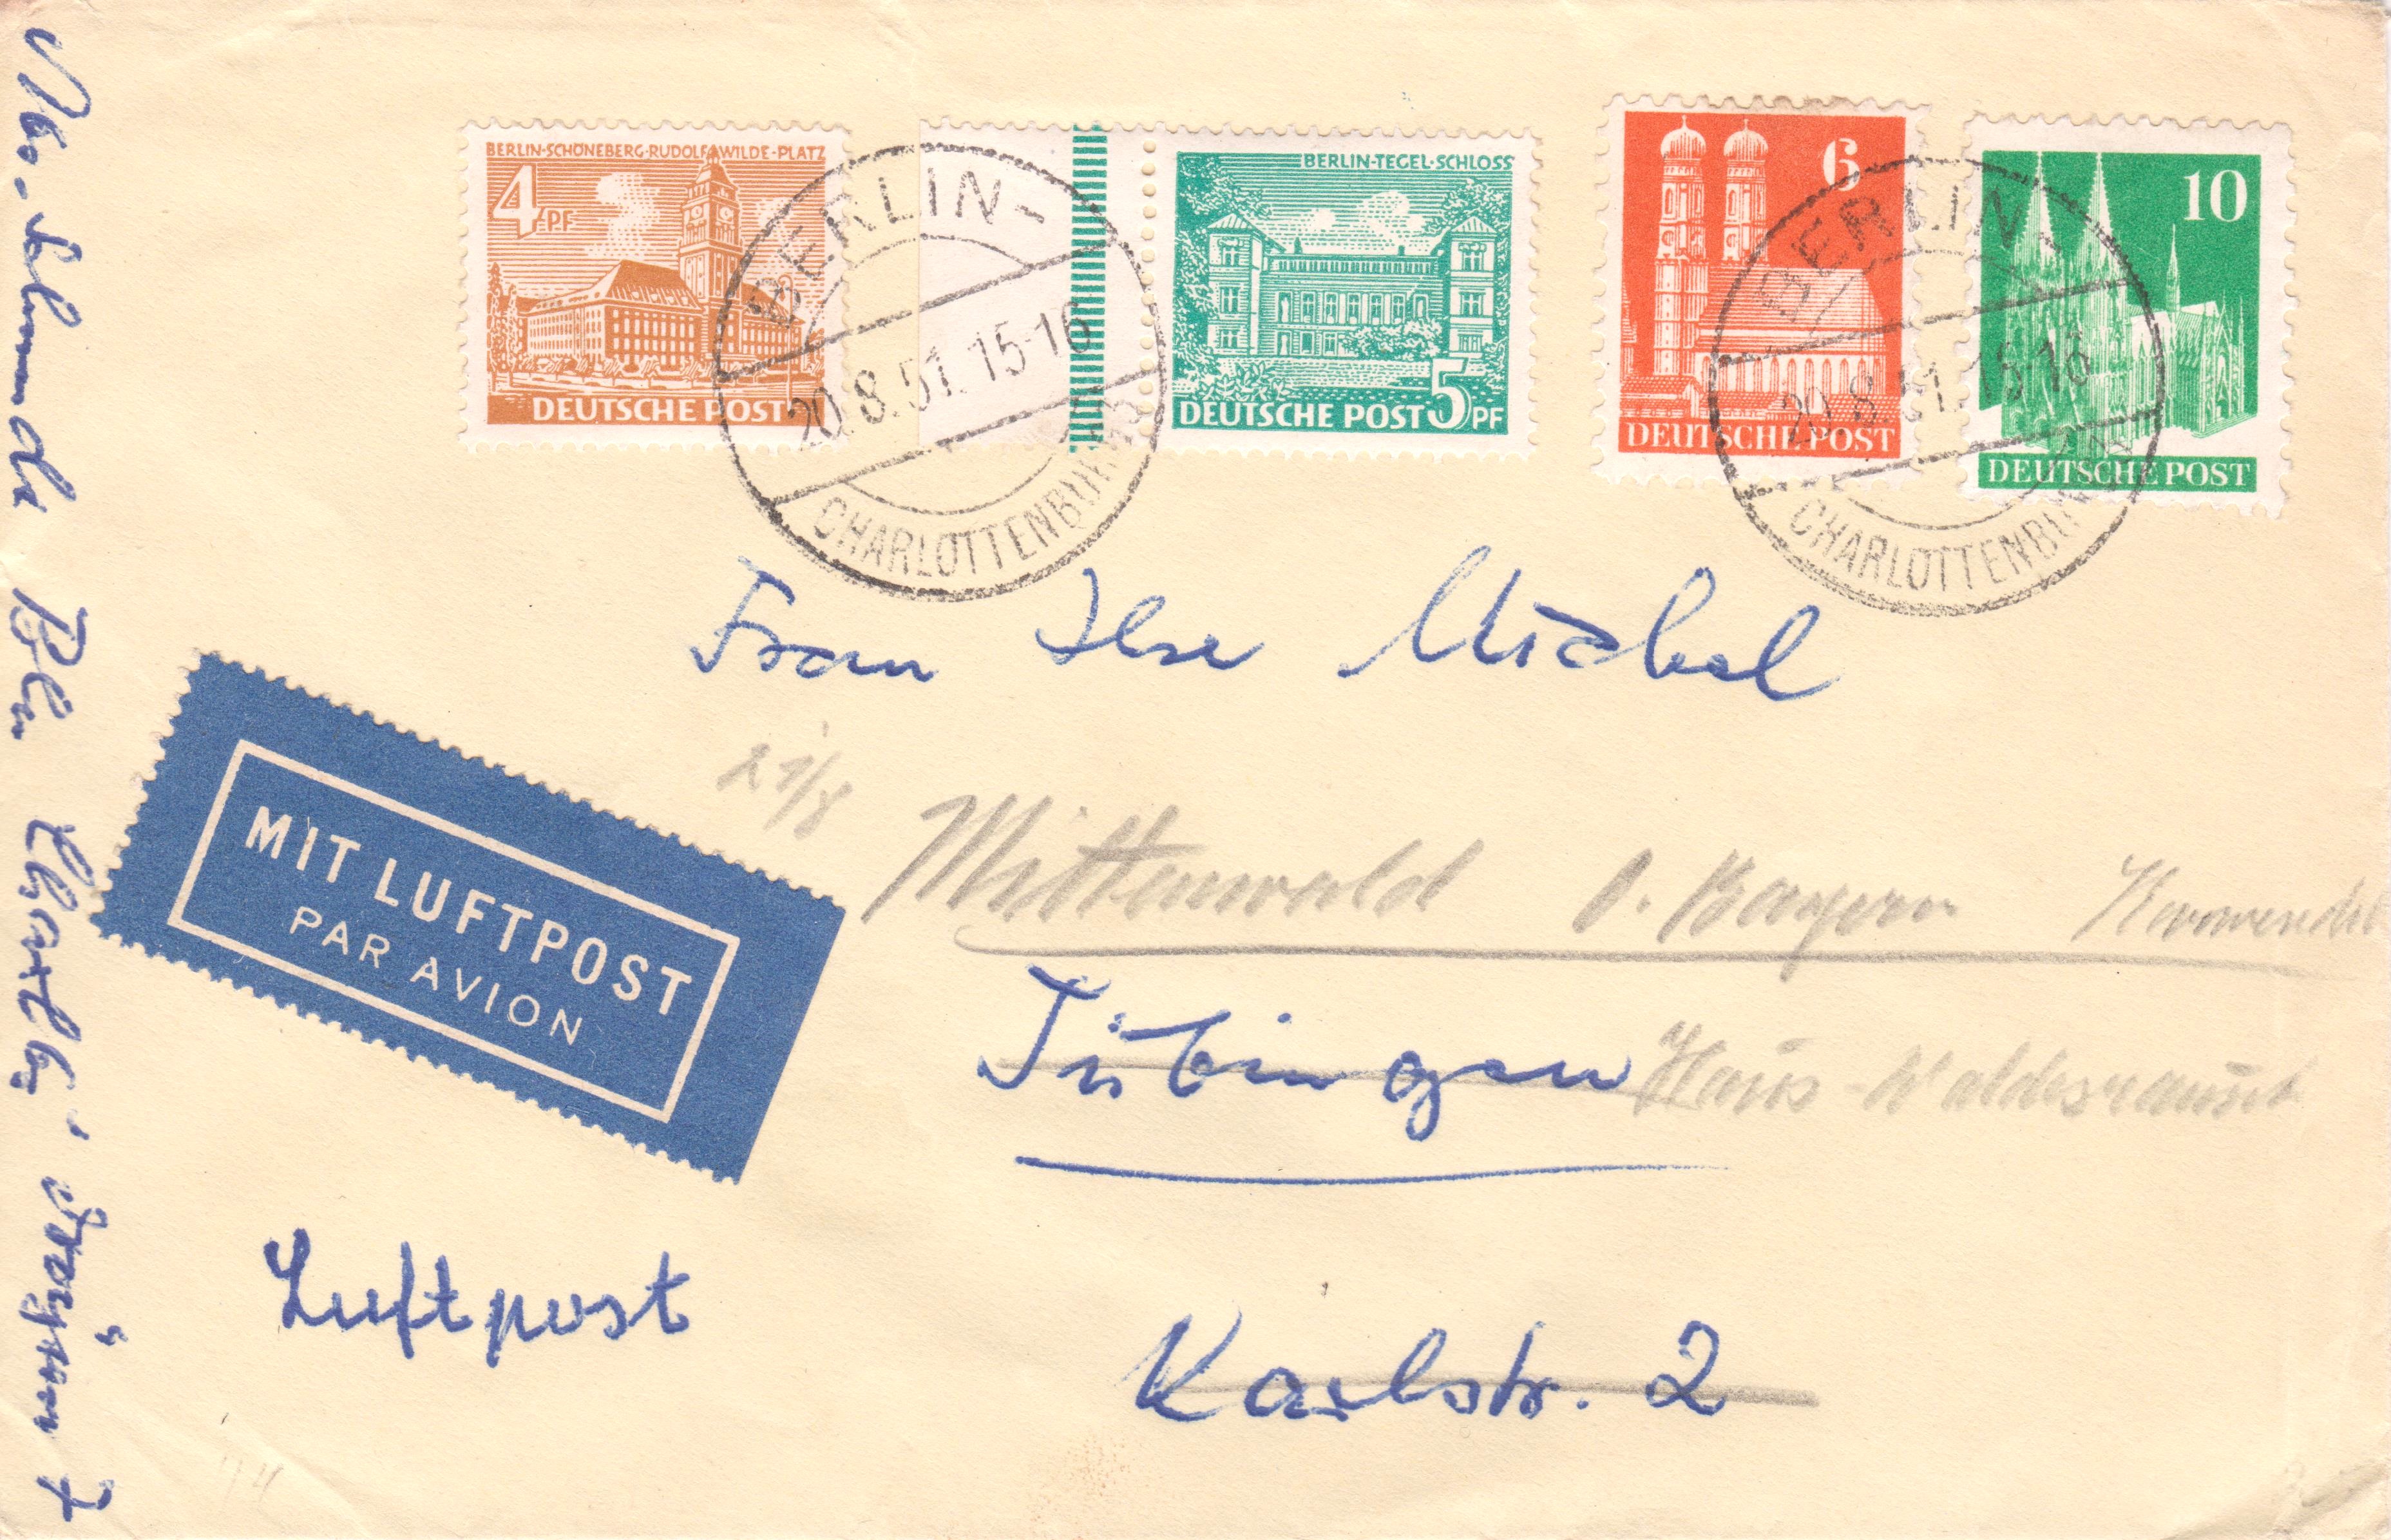 BERLIN-SCHÖNEBERG·RUDOLF WILDE-PLATZ
4 PF
DEUTSCHE POST
BERLIN-TEGEL·SCHLOSS
DEUTSCHE POST 5 PF
6
DEUTSCHE POST
10
DEUTSCHE POST
BERLIN-
20.8.51.15-16
CHARLOTTENBURG
BERLIN-
20.8.51.15-16
CHARLOTTENBURG
Frau Ilse Michel
21/8
Mittenwald Bayern Karwendel
Tübingen Haus-Waldesrauscht
Karlstr. 2
MIT LUFTPOST
PAR AVION
Luftpost
Bln Charltbg. 7